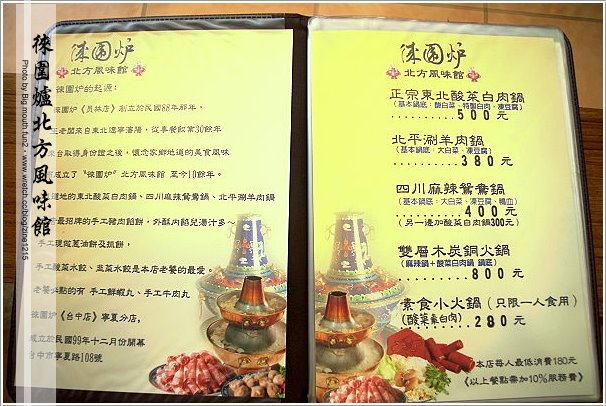 徠圍爐北方風味館
Photo by Big mouth fun2 . www.wretch.cc/blog/zine1215
徠圍炉
北方風味館
徠圍炉的起源:
徠圍炉《員林店》創立於民國88年爺年。
老闆來自東北遼寧瀋陽,從事餐飲業30餘年
來台取得身份證之後,懷念家鄉地道的美食風味
成立了"徠圍炉"北方風味館 至今10餘年。
道地的東北酸菜白肉鍋、四川麻辣鴛鴦鍋、北平涮羊肉鍋
最招牌的手工豬肉餡餅,外酥內餡兒湯汁多~
手工現做蔥油餅及抓餅,
手工酸菜水餃、韮菜水餃是本店老饕的最愛。
老饕必點的有 手工鮮蝦丸、手工牛肉丸
徠圍炉《台中店》寧夏分店,
成立於民國99年十二月份開幕
台中市寧夏路108號
徠圍炉
北方風味館
正宗東北酸菜白肉鍋
(基本鍋底、酸白菜、特製白肉、凍豆腐)
..........500元
北平涮羊肉鍋
(基本鍋底、大白菜、凍豆腐)
..........380元
四川麻辣鴛鴦鍋
(基本鍋底、大白菜、凍豆腐、鴨血)
..........400元
(另一邊加酸菜白肉鍋300元)
雙層木炭銅火鍋
(麻辣鍋+酸菜白肉鍋 鍋底)
..........800元
素食小火鍋(只限一人食用)
(酸菜素白肉)
..........280元
本店每人最低消費180元
《以上餐點需加10%服務費》